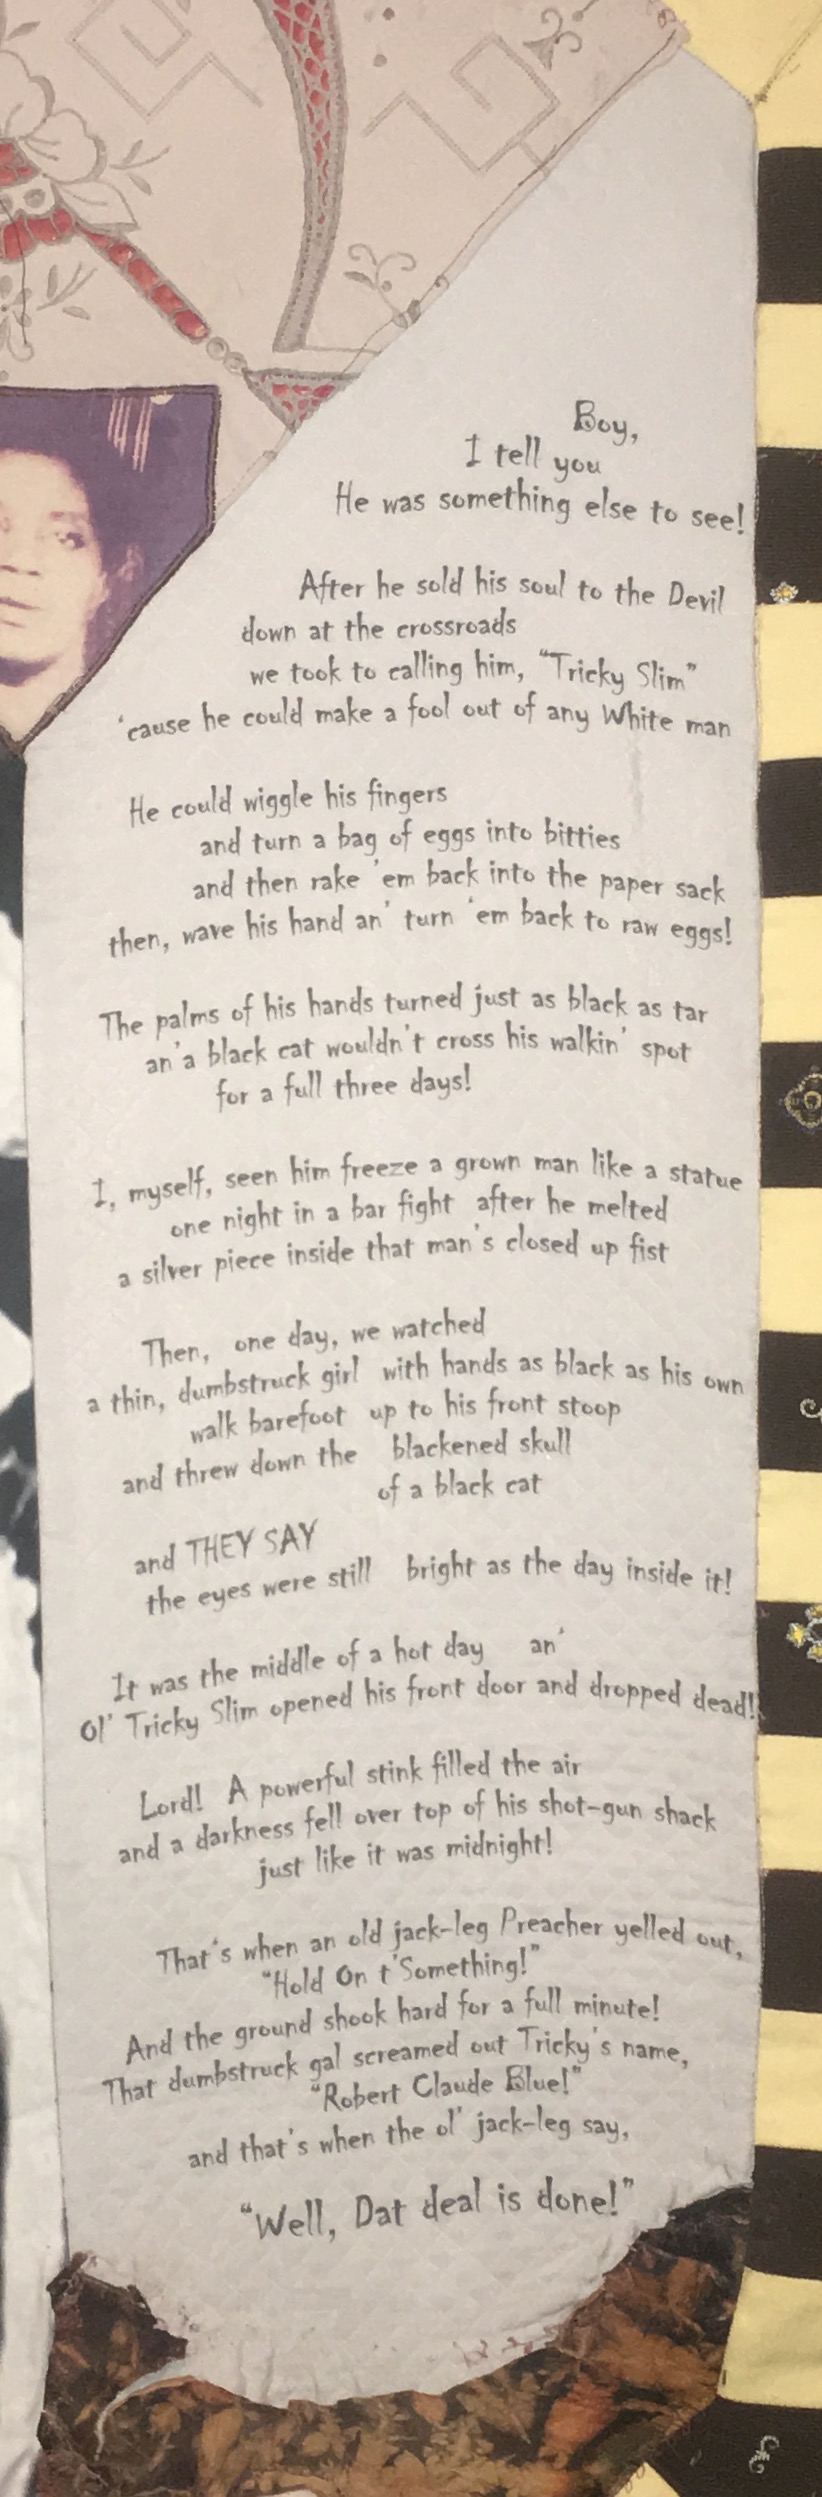 Boy,
I tell you
He was something else to see!
After he sold his soul to the Devil
down at the crossroads
we took to calling him, “Tricky Slim”
‘cause he could make a fool out of any White man
He could wiggle his fingers
and turn a bag of eggs into bitties
and then rake ‘em back into the paper sack
then, wave his hand an’ turn ‘em back to raw eggs!
The palms of his hands turned just as black as tar
an’a black cat wouldn’t cross his walkin’ spot
for a full three days!
I, myself, seen him freeze a grown man like a statue
one night in a bar fight after he melted
a silver piece inside that man’s closed up fist
Then, one day, we watched
a thin, dumbstruck girl with hands as black as his own
walk barefoot up to his front stoop
and threw down the blackened skull
of a black cat
and THEY SAY
the eyes were still bright as the day inside it!
It was the middle of a hot day an’
Ol’ Tricky Slim opened his front door and dropped dead!
Lord! A powerful stink filled the air
and a darkness fell over top of his shot-gun shack
just like it was midnight!
That’s when an old jack-leg Preacher yelled out,
“Hold On t’Something!”
And the ground shook hard for a full minute!
That dumbstruck gal screamed out Tricky’s name,
“Robert Claude Blue!”
and that’s when the ol’ jack-leg say,
“Well, Dat deal is done!”